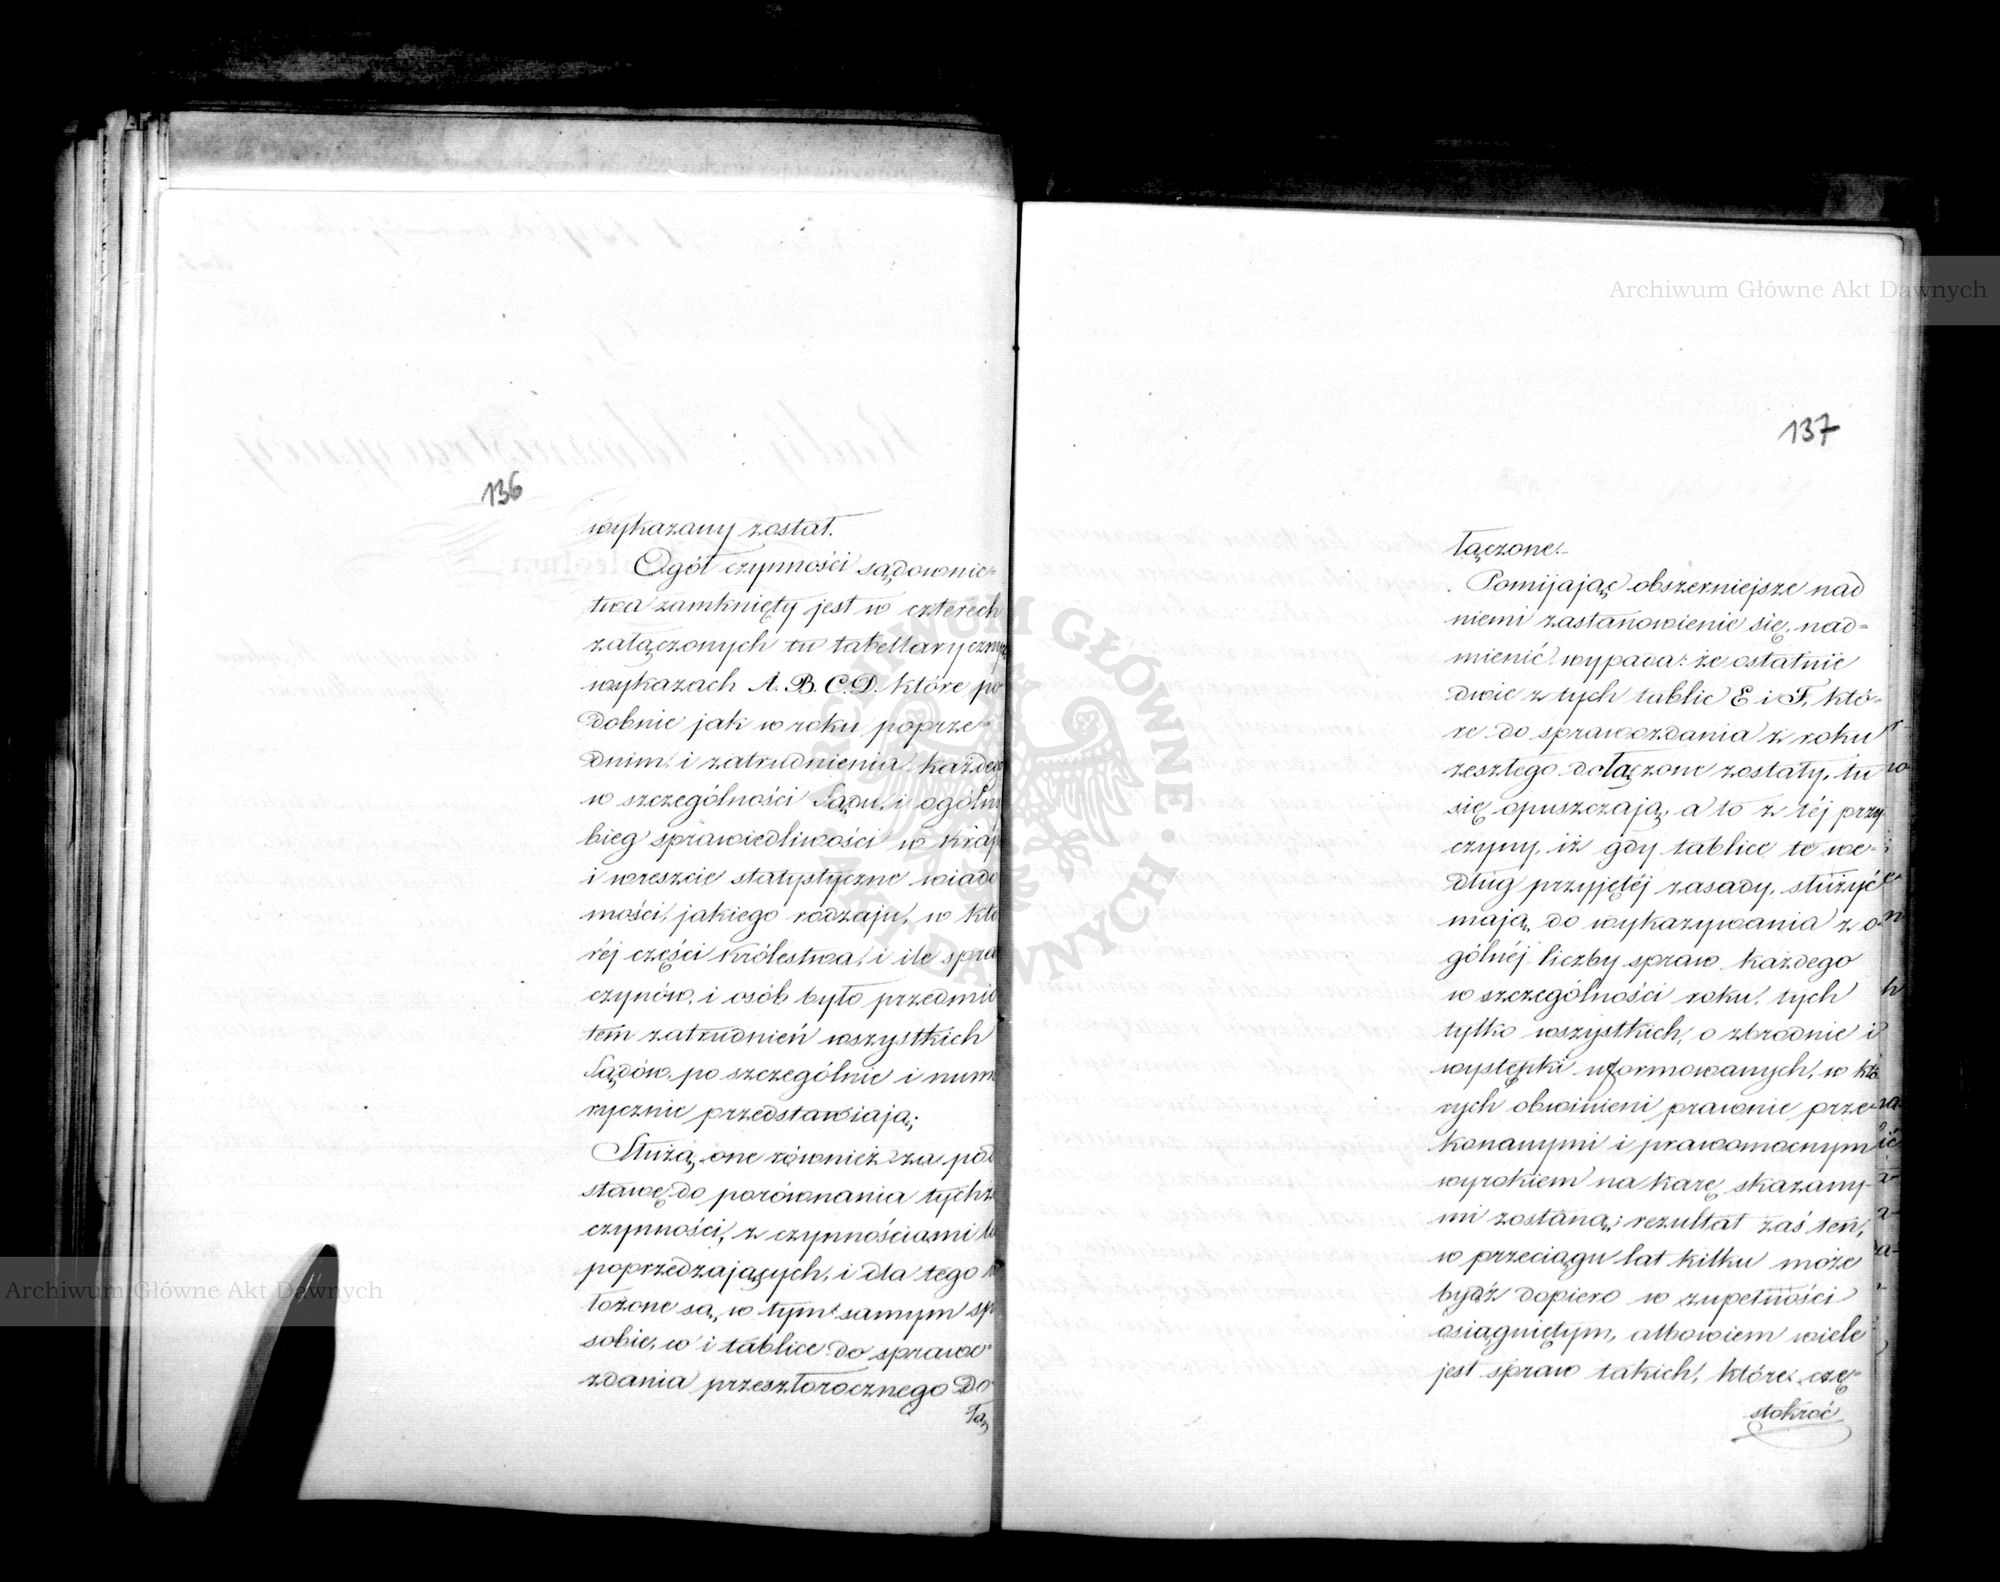 136
wykazany został.
Ogół czynności sądownic=
twa zamknięty jest w czterech
załączonych tu tabellaryczny
wykazach A. B. C. D. które po
dobnie jak w roku poprze=
dnim, i zatrudnienia każdeg
w szczególności Sądu, i ogóln
bieg sprawiedliwości w kraj
i wreszcie statystyczne wiado
mości, jakiego rodzaju, w któ
réj części Królestwa, i ile spra
czynów, i osób było przedmio
tem zatrudnień wszystkich
Sądów, po szczególnie i num
rycznie przedstawiają;
Służą one również za pod
stawę do porównania tychż
czynności, z czynnościami la
poprzedzających, i dla tego
łożone są, w tym samym sp
sobie, w i tablice do sprawo=
zdania przeszłorocznego do
łą
137
łączone.
Pomijając obszerniejsze nad
niemi zastanowienie się, nad=
mienić wypada: że ostatnie
dwie z tych tablic E i F, któ=
re do sprawozdania z roku
zeszłego dołączone zostały, tu
się opuszczają, a to z téj przy
czyny, iż gdy tablice te we=
dług przyjętéj zasady, służyć
mają do wykazywania z o=
gólnéj liczby spraw każdego
w szczególności roku, tych
tylko wszystkich, o zbrodnie i
występki uformowanych, w któ
rych obwinieni prawnie prze
konanymi i prawomocnym
wyrokiem na karę skazany=
mi zostaną; rezultat zaś ten,
w przeciągu lat kilku może
bydź dopiero w zupełności
osiągniętym, albowiem wiele
jest spraw takich, które czę=
stokroć
Archiwum Główne Akt Dawnych
Archiwum Główne Akt Dawnych
ARCHIWUM GŁÓWNE AKT DAWNYCH